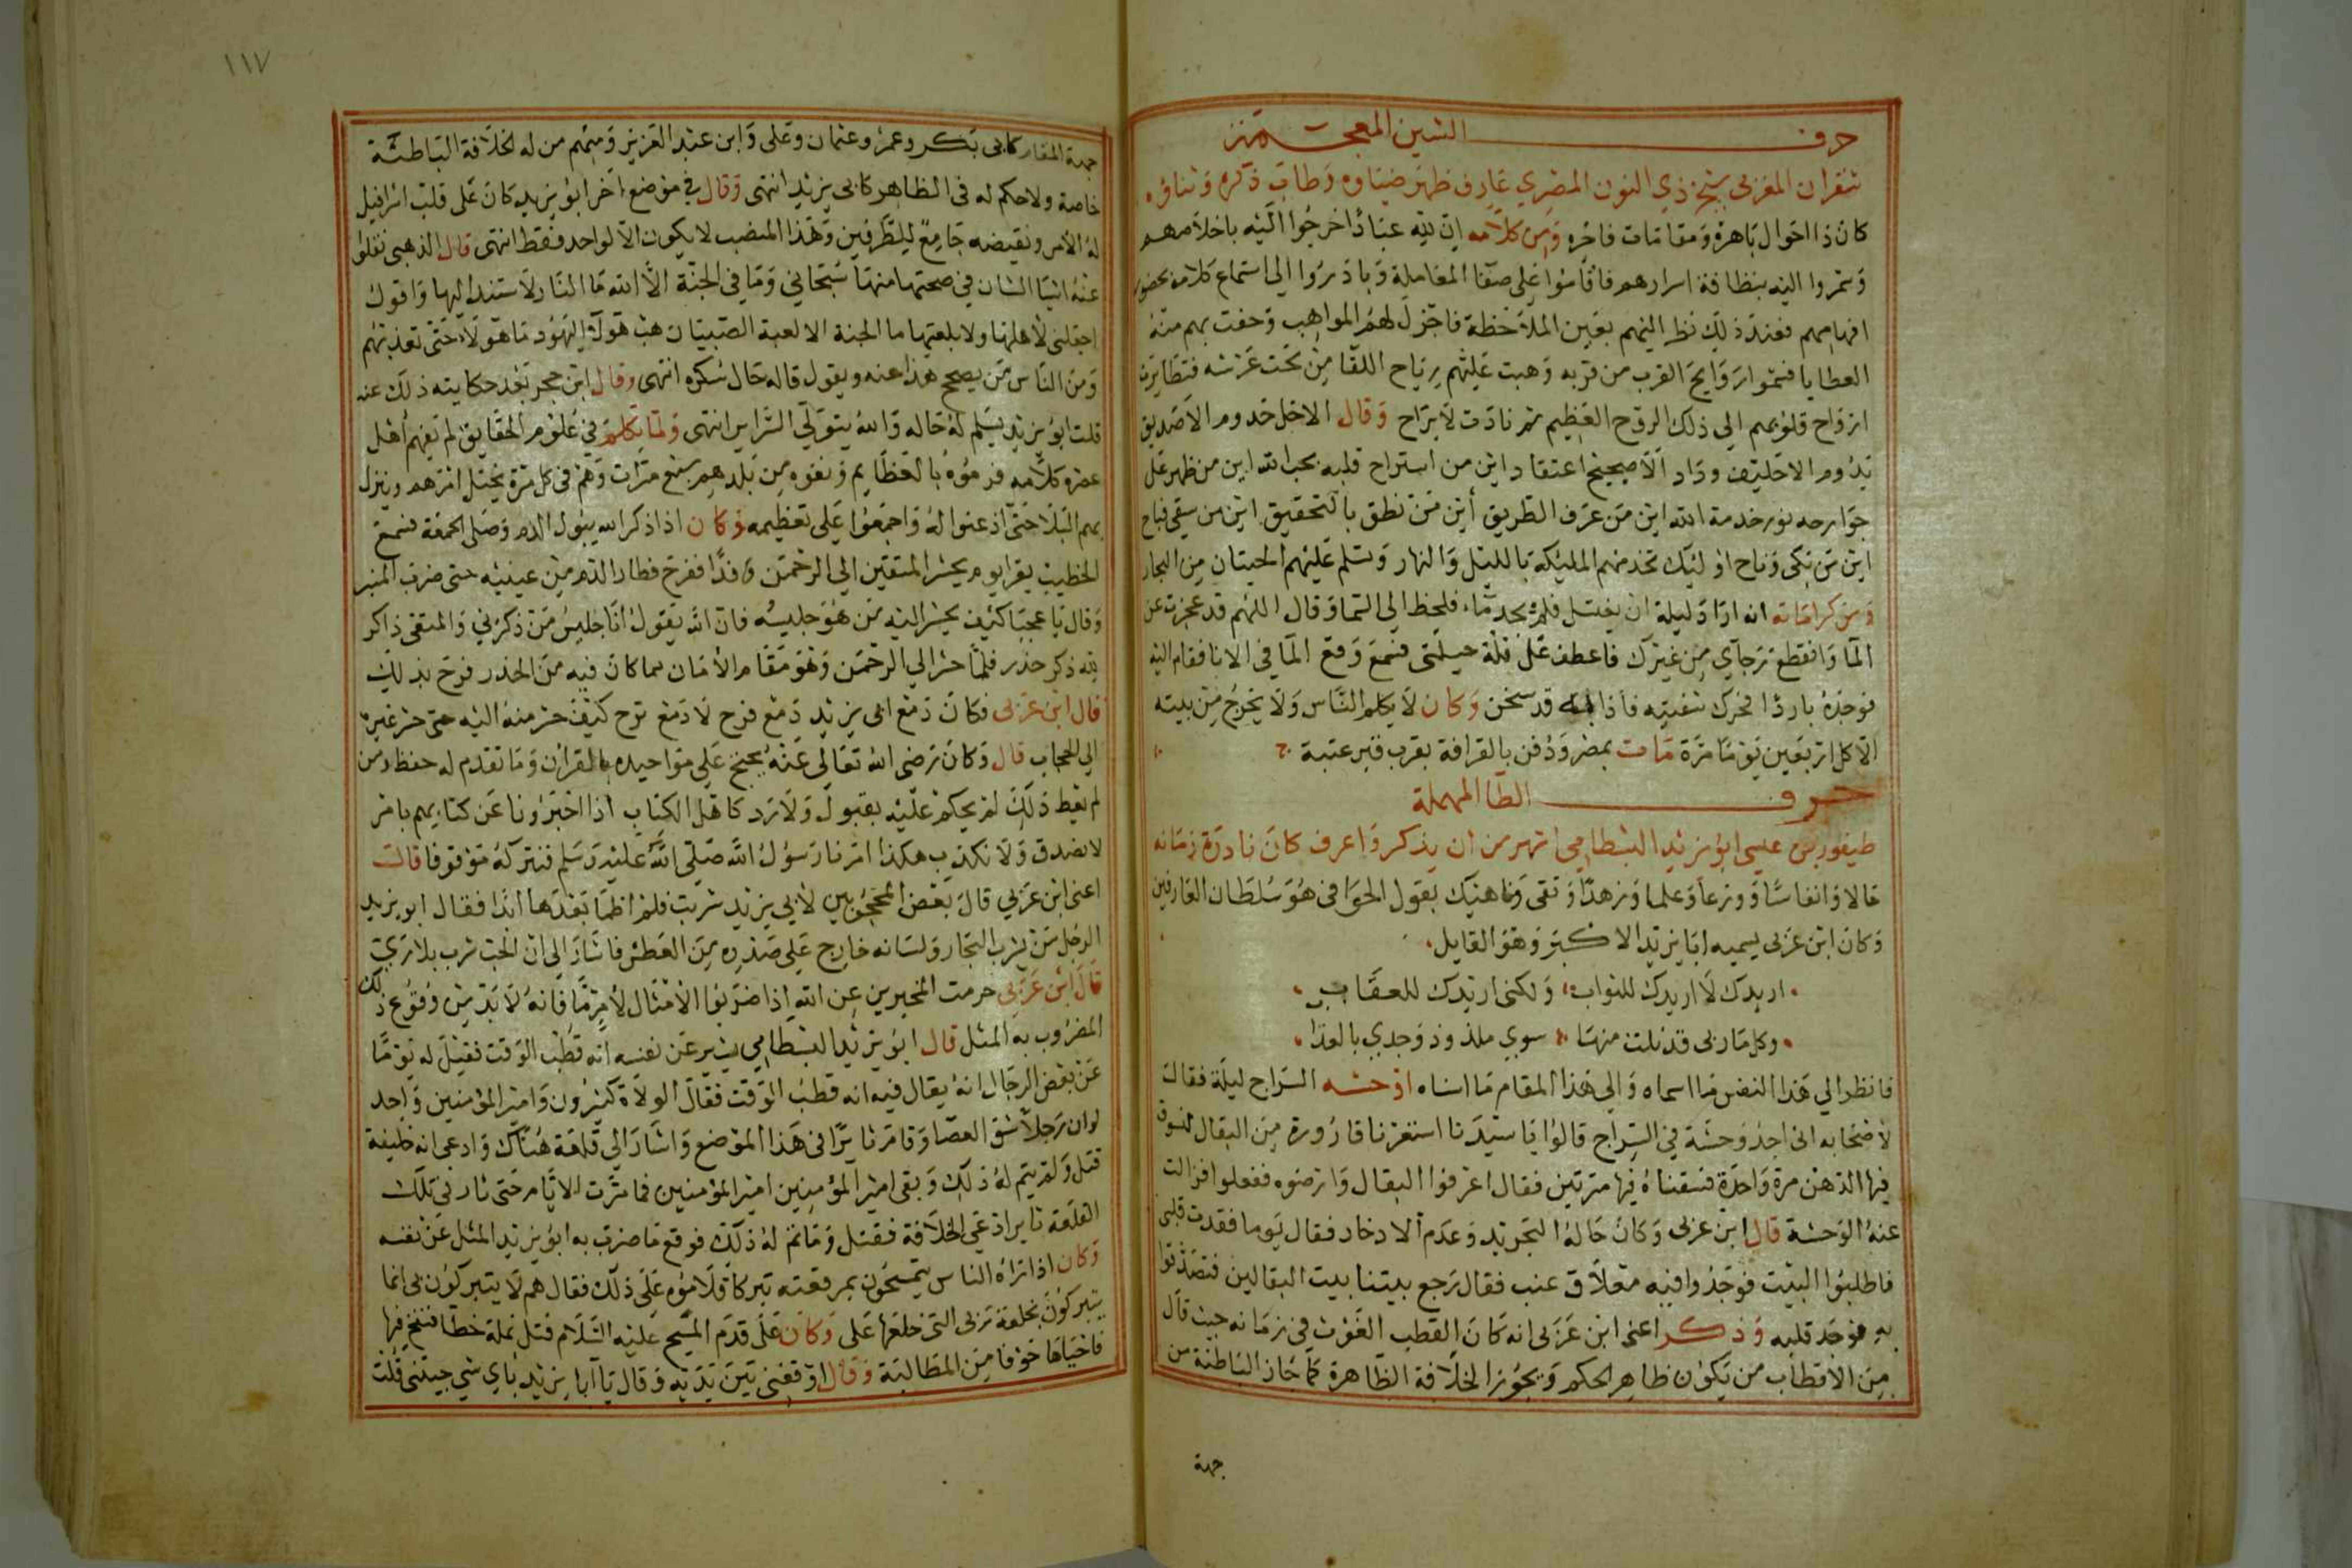 حرف الشين المعجمة
شقران المغربي شيخ ذي النون المصري عارف ظهر ضياوه وطاب ذكره وثناؤه
كان ذا احوال باهرة ومقامات فاخره ومن كلامه ان لله عبادا خرجوا اليه باخلاصهم
وشمروا اليه بنظافة اسرارهم فاقاموا على صفا المعاملة وبادروا الى استماع كلامه بحضور
افهامهم فعند ذلك نظر اليهم بعين الملاحظة فاجزل لهم المواهب وحفت بهم منه
العطايا فشموا روايح القرب من قربه وهبت عليهم رياح اللقا من تحت عرشه فتطايرت
ارواح قلوبهم الي ذلك الروح العظيم ثم نادت لا براح وقال الاخل خدوم الا صديق
يدوم الا حليف وداد الا صحيح اعتقاد اين من استراح قلبه بحب الله اين من ظهر على
جوارحه نور خدمة الله اين من عرف الطريق أين من نطق بالتحقيق اين من سقي فباح
اين من بكى وناح اوليك تخدمهم المليكة بالليل والنهار وتسلم عليهم الحيتان من البحار
ومن كراماته انه اراد ليلة ان يغتسل فلم يجد ماء فلحظ الى السما وقال اللهم قد عجزت عن
الما وانقطع رجآي من غيرك فاعطف على قلة حيلتى فسمع وقع الما في الانا فقام اليه
فوجده باردا فحرك شفتيه فاذا به قد سخن وكان لا يكلم الناس ولا يخرج من بيته
الا كل اربعين يوما مرة مات بمصر ودفن بالقرافة بقرب قبر عتبة
حرف الطا المهملة
طيفور بن عيسى ابو يزيد البسطامي اشهر من ان يذكر واعرف كان نادرة زمانه
حالا وانفاسا وورعا وعلما وزهدا وتقى وناهيك بقول الخوافى هو سلطان العارفين
وكان ابن عربى يسميه ابا يزيد الاكبر وهو القايل
اريدك لا اريدك للثواب ولكنى اريدك للعقاب
وكل مآربى قد نلت منها سوي ملذوذ وجدي بالعذا
فانظر الي هذا النفس ما اسماه والي هذا المقام ما اسناه اوحشه السراج ليلة فقال
لاصحابه انى اجد وحشة في السراج قالوا يا سيدنا استعرنا قارورة من البقال لنسوق
فيها الدهن مرة واحدة فسقناه فيها مرتين فقال اعرفوا البقال وارضوه ففعلوا فزالت
عنه الوحشة قال ابن عربى وكان حاله التجريد وعدم الادخار فقال يوما فقدت قلبى
فاطلبوا البيت فوجدوا فيه معلاق عنب فقال رجع بيتنا بيت البقالين فتصدقوا
به فوجد قلبه وذكر اعنى ابن عربى انه كان القطب الغوث في زمانه حيث قال
من الاقطاب من يكون ظاهر الحكم ويحوز الخلافة الظاهرة كما حاز الباطنة من
جهة
١١٧
جهة المقام كابى بكر وعمر وعثمان وعلى وابن عبد العزيز ومنهم من له الخلافة الباطنة
خاصة ولا حكم له فى الظاهر كابى يزيد انتهى وقال في موضع اخر ابو يزيد كان على قلب اسرافيل
له الامر ونقيضه جامع للطرفين وهذا المنصب لا يكون الا لواحد فقط انتهى قال الذهبى نقلوا
عنه اشيا الشان في صحتها منها سبحاني وما في الجنة الا الله ما النار لاستندن اليها واقول
اجعلنى لاهلها ولابلعنها ما الجنة الا لعبة الصبيان هب هولا اليهود ما هولاء حتى تعذبهم
ومن الناس من يصحح هذا عنه ويقول قاله حال سكره انتهى وقال ابن حجر بعد حكايته ذلك عنه
قلت ابو يزيد يسلم له حاله والله يتولى السراير انتهى ولما تكلم في علوم الحقايق لم يفهم أهل
عصره كلامه فرموه بالعظايم ونفوه من بلدهم سبع مرات وهم فى كل مرة يختل امرهم وينزل
بهم البلا حتى اذعنوا له واجمعوا على تعظيمه وكان اذا ذكر الله يبول الدم وصلى الجمعة فسمع
الخطيب يقرا يوم يحشر المتقين الى الرحمن وفدا ففرح فطار الدم من عينيه حتى ضرب المنبر
وقال يا عجبا كيف يحشر اليه من هو جليسه فان الله يقول انا جليس من ذكرني والمتقى ذاكر
لله ذكر حذر فلما حشر الي الرحمن وهو مقام الامان مما كان فيه من الحذر فرح بذلك
قال ابن عربى فكان دمع ابى يزيد دمع فرح لا دمع ترح كيف حشر منه اليه حتى حشر غيره
الي الحجاب قال وكان رضى الله تعالى عنه يحتج على مواجيده بالقران وما تقدم له حفظ ومن
لم يعط ذلك لم يحكم عليه بقبول ولا رد كاهل الكتاب اذا اخبرونا عن كتابهم بامر
لا نصدق ولا نكذب هكذا امرنا رسول الله صلى الله عليه وسلم فنتركه موقوفا قالت
اعنى ابن عربي قال بعض المحجوبين لابي يزيد شربت فلم اظما بعدها ابدا فقال ابو يزيد
الرجل من يشرب البحار ولسانه خارج على صدره من العطش فاشار الى ان الحب شرب بلا ري
قال ابن عربى حرمت المخبرين عن الله اذا ضربوا الامثال لامرما فانه لا بد من وقوع ذلك
المضروب به المثل قال ابو يزيد البسطامي يشير عن نفسه انه قطب الوقت فقيل له يوما
عن بعض الرجال انه يقال فيه انه قطب الوقت فقال الولاة كثيرون وامير المؤمنين واحد
لو ان رجلا شق العصا وقام ثايرا فى هذا الموضع واشار الي قلعة هناك وادعى انه خليفة
قتل ولم يتم له ذلك وبقى امير المؤمنين امير المؤمنين فما مرت الايام حتى ثار فى تلك
القلعة ثاير ادعى الخلافة فقتل وما تم له ذلك فوقع ما ضرب به ابو يزيد المثل عن نفسه
وكان اذا تراه الناس يتمسحون بمرقعته تبركا فلاموه على ذلك فقال هم لا يتبركون بى انما
يتبركون بخلعة ربى التى خلعها على وكان على قدم المسيح عليه السلام قتل نملة خطا فنفخ فيها
فاحياها خوفا من المطالبة وقال اوقفنى بين يديه وقال يا ابا يزيد باي شي جيتنى قلت